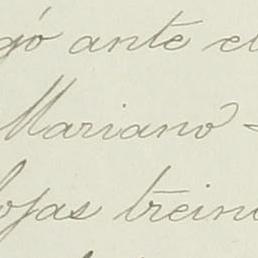 gó ante el
Mariano
ojas trein